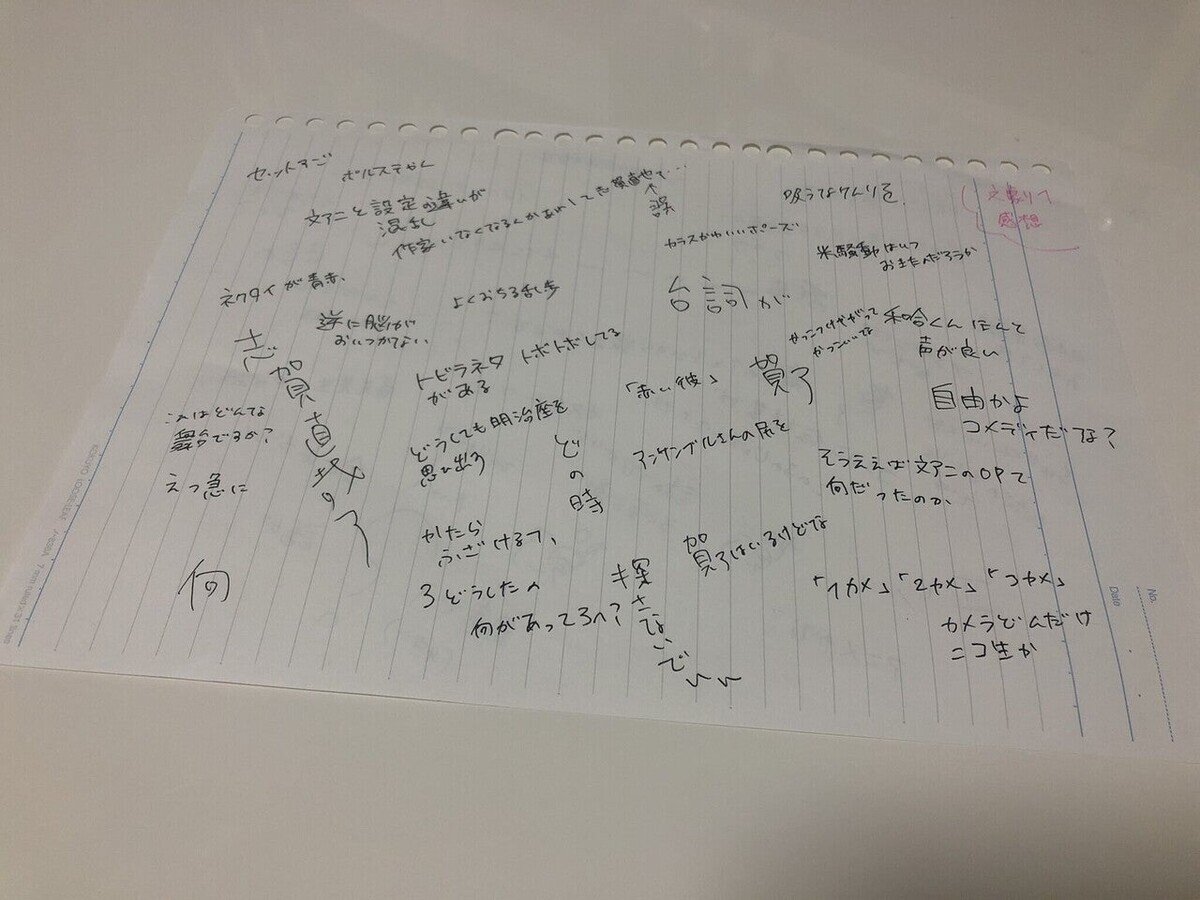 文劇6
感想
セットすご
ボルステさん
文アニと設定の違いが
混乱
作家いなくなるんかあれして志賀直也で…
↑
誤
吸うなけんりを!
カラスかわいいポーズ
米騒動はいつ
おきたんだろうか
ネクタイが青赤、
逆に脳が
おいつかない、
よくおちる乱歩
台詞が
志賀直哉の了
トビラネタ
がある
トボトボしてる
「赤い彼」
賀了
かっこつけやがって
かっこいいな
和哈くんほんと
声が良い
自由かよ
コメディだな?
これはどんな
舞台ですか?
えっ急に
何
どうしても明治座を
思い出す
どの時
アンサンブルさんの尻を
そうえば文アニのOPて
何だったのか、
かたら
ふざけるて、
3どうしたの
何があって3へ?
探さないでいい
賀了はいるけどな
「1カメ」「2カメ」「3カメ」
カメラどんだけ
ニコ生か
No.
Date